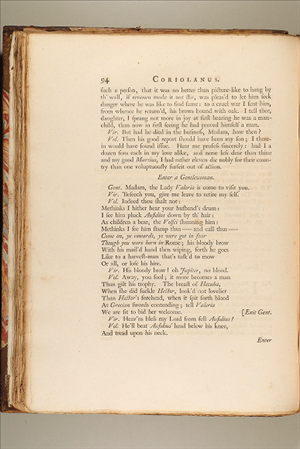 94 CORIOLANUS.
such a person, that it was no better than picture-like to hang by
th' wall, if renown made it not stir, was pleas'd to let him seek
danger where he was like to find fame: to a cruel war I sent him,
from whence he return'd, his brows bound with oak. I tell thee,
daughter, I sprang not more in joy at first hearing he was a man-
child, than now in first seeing he had proved himself a man.
Vir. But had he died in the business, Madam, how then?
Vol. Then his good report should have been my son; I there-
in would have found issue. Hear me profess sincerely: had I a
dozen sons each in my love alike, and none less dear than thine
and my good Marcius, I had rather eleven die nobly for their coun-
try than one voluptuously surfeit out of action.
Enter a Gentlewoman.
Gent. Madam, the Lady Valeria is come to visit you.
Vir. 'Beseech you, give me leave to retire my self.
Vol. Indeed thou shalt not:
Methinks I hither hear your husband's drum:
I see him pluck Aufidius down by th' hair:
As children a bear, the Volsci shunning him:
Methinks I see him stamp thus — and call thus —
Come on, ye cowards, ye were got in fear
Though you were born in Rome; his bloody brow
With his mail'd hand then wiping, forth he goes
Like to a harvest-man that's task'd to mow
Or all, or lose his hire.
Vir. His bloody brow! oh Jupiter, no blood.
Vol. Away, you fool; it more becomes a man
Than gilt his trophy. The breast of Hecuba,
When she did suckle Hector, look'd not lovelier
Than Hector's forehead, when it spit forth blood
At Grecian swords contending; tell Valeria
We are fit to bid her welcome. [Exit Gent.
Vir. Heav'ns bless my Lord from fell Aufidius!
Vol. He'll beat Aufidius' head below his knee,
And tread upon his neck.
Enter